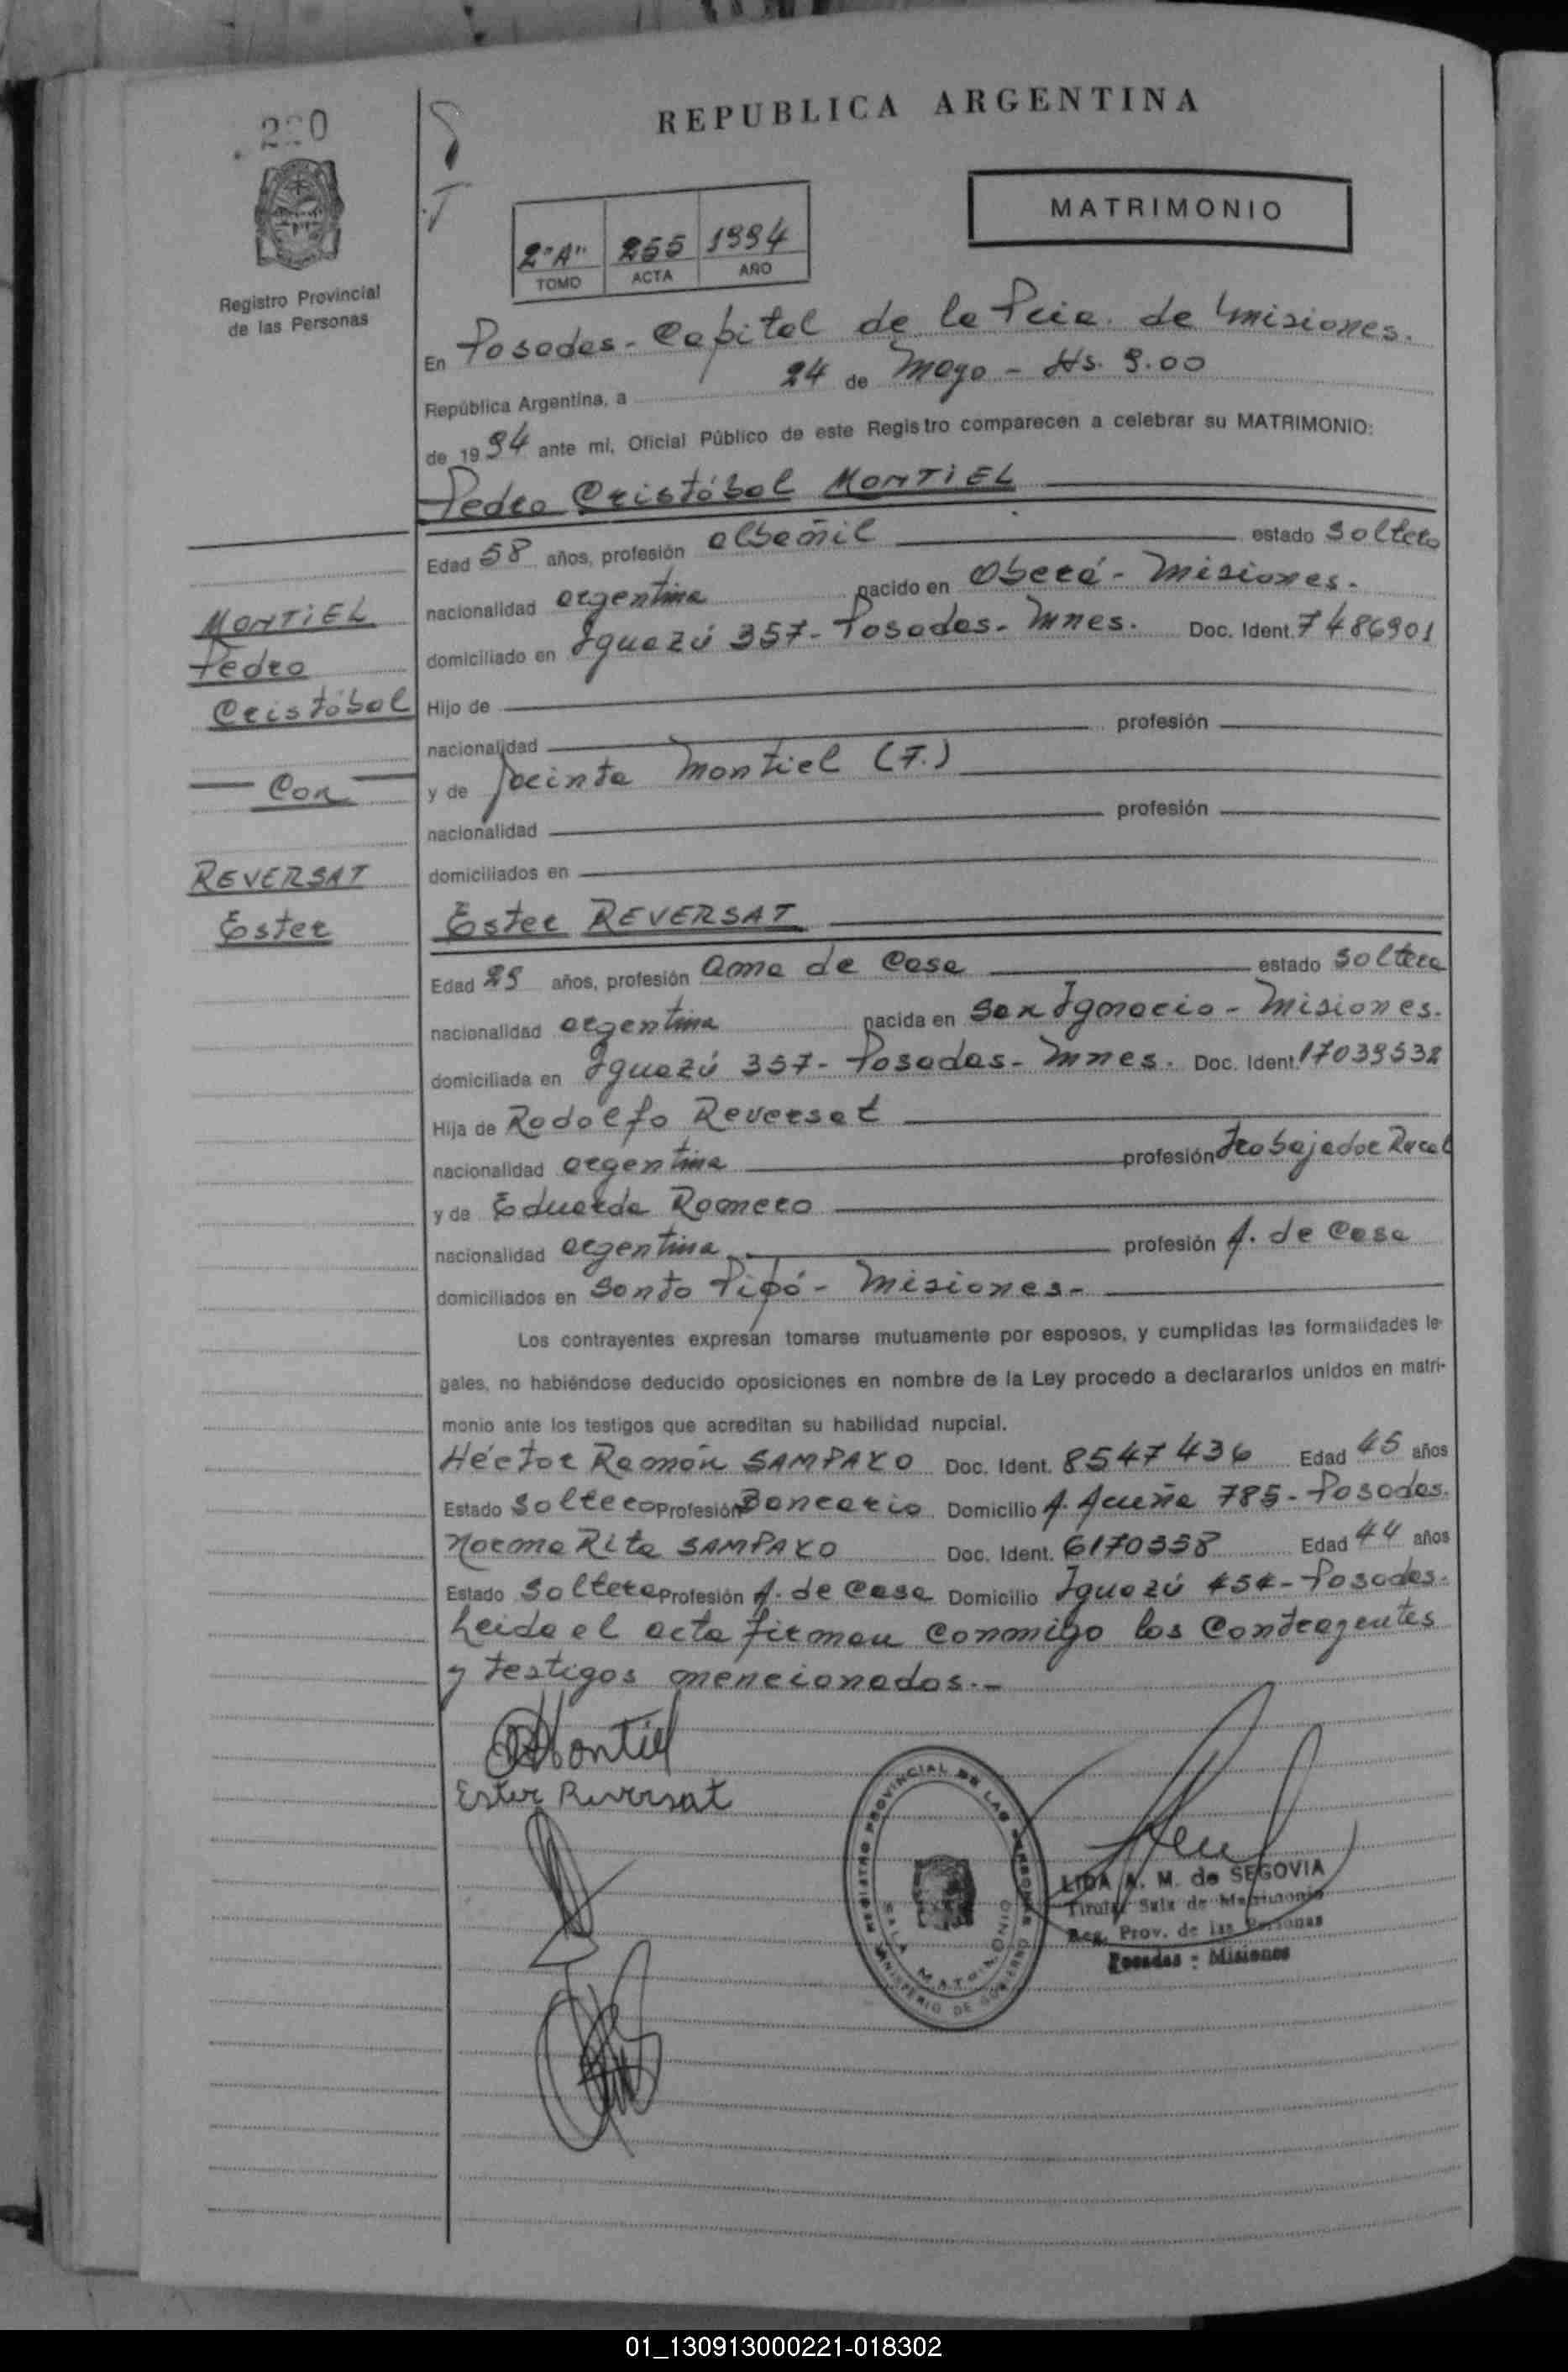 REPUBLICA ARGENTINA
MATRIMONIO
Registro Provincial
de las Personas
2"A" 255 1994
TOMO ACTA AÑO
En Posadas - Capital de la Pcia. de Misiones.
República Argentina, a 24 de Mayo - Hs. 9.00
de 1994 ante mí, Oficial Público de este Registro comparecen a celebrar su MATRIMONIO:
Pedro Cristóbal MONTIEL
Edad 58 años, profesión albañil estado soltero
nacionalidad argentina nacido en Oberá - Misiones.
domiciliado en Iguazú 357 - Posadas - Mnes. Doc. Ident. 7486901
Hijo de
nacionalidad profesión
y de Jacinta Montiel (F.)
nacionalidad profesión
domiciliados en
MONTIEL
Pedro
Cristóbal
Con
REVERSAT
Ester
Ester REVERSAT
Edad 29 años, profesión Ama de Casa estado soltera
nacionalidad argentina nacida en San Ignacio - Misiones.
domiciliada en Iguazú 357 - Posadas - Mnes. Doc. Ident. 17039532
Hija de Rodolfo Reversat
nacionalidad argentina profesión Trabajador Rural
y de Eduarda Romero
nacionalidad argentina profesión A. de Casa
domiciliados en Santo Pipó - Misiones -
Los contrayentes expresan tomarse mutuamente por esposos, y cumplidas las formalidades le-
gales, no habiéndose deducido oposiciones en nombre de la Ley procedo a declararlos unidos en matri-
monio ante los testigos que acreditan su habilidad nupcial.
Héctor Ramón SAMPAYO Doc. Ident. 8547436 Edad 45 años
Estado soltero Profesión Bancario Domicilio A. Acuña 785 - Posadas.
Norma Rita SAMPAYO Doc. Ident. Edad 44 años
Estado soltera Profesión A. de Casa Domicilio Iguazú 454 - Posadas.
Leída el acta firman conmigo los contrayentes
y testigos mencionados.-
Montiel
Ester Reversat
REGISTRO PROVINCIAL DE LAS PERSONAS
SALA MATRIMONIO
MINISTERIO DE GOBIERNO
LIDA A. M. de SEGOVIA
Titular Sala de Matrimonio
Reg. Prov. de las Personas
Posadas - Misiones
01_130913000221-018302